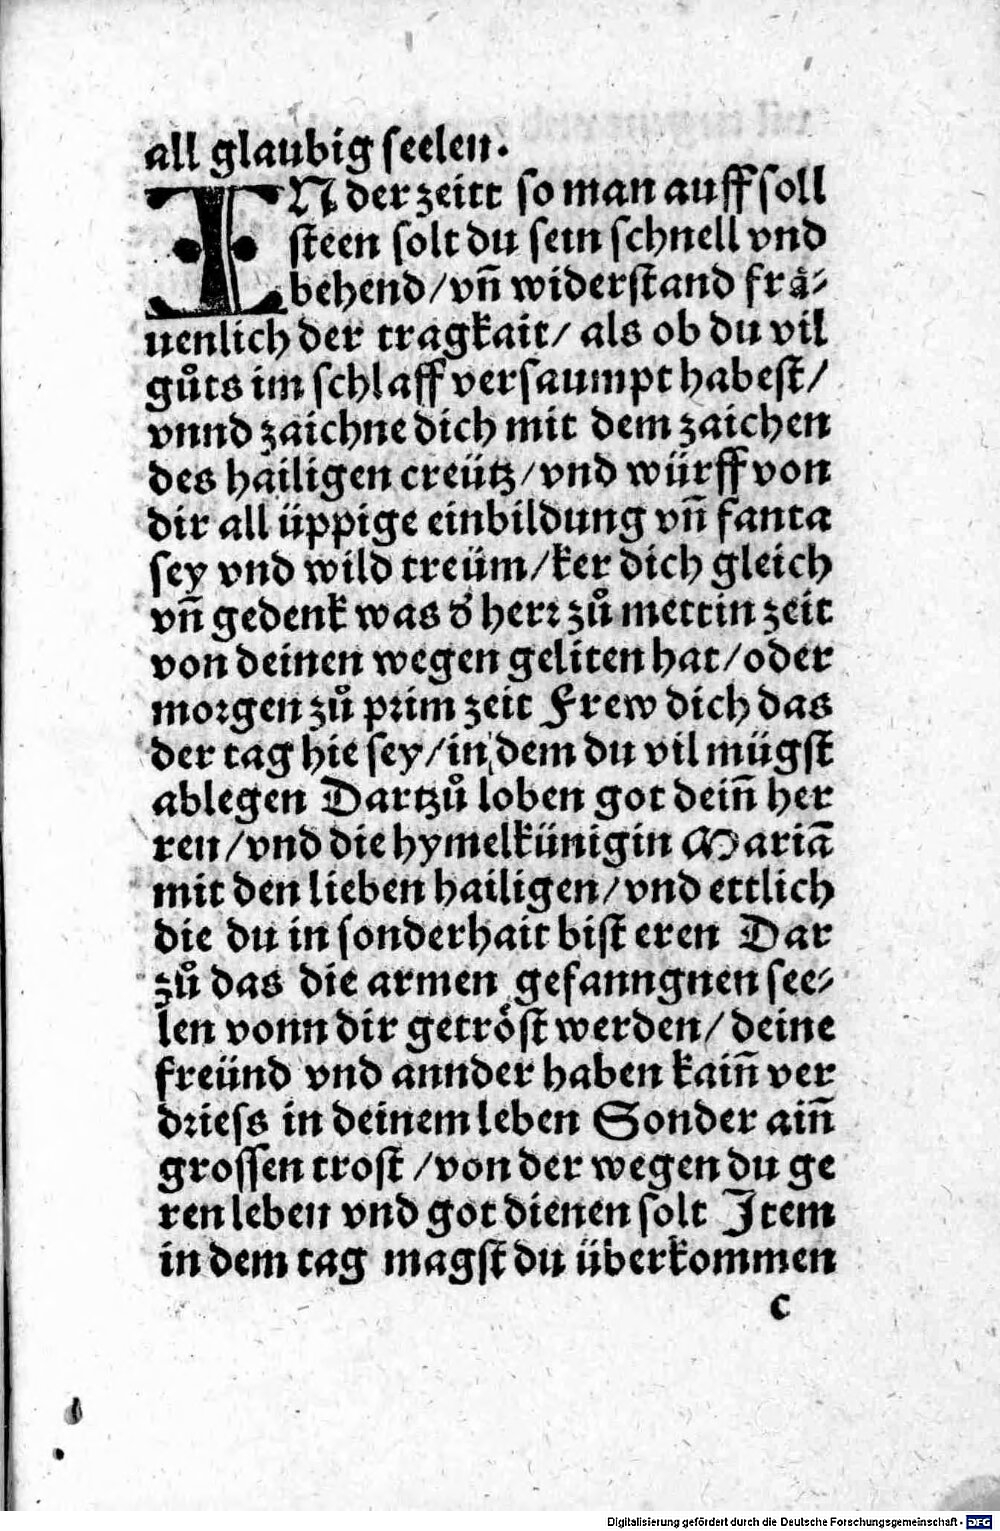 all glaubig seelen.
IN der zeitt so man auff soll
steen solt du sein schnell vnd
behend/vn̄ widerstand frä⸗
uenlich der tragkait/ als ob du vil
gůts im schlaff versaumpt habest/
vnnd zaichne dich mit dem zaichen
des hailigen creütz/vnd würff von
dir all üppige einbildung vn̄ fanta
sey vnd wild treüm/ker dich gleich
vn̄ gedenk was d' herr zů mettin zeit
von deinen wegen geliten hat/oder
morgen zů prim zeit Frew dich das
der tag hie sey/in dem du vil mügst
ablegen Dartzů loben got dein̄ her
ren/vnd die hymelkünigin Mariā
mit den lieben hailigen/vnd ettlich
die du in sonderhait bist eren Dar
zů das die armen gefanngnen see⸗
len vonn dir getröst werden/ deine
freünd vnd annder haben kain̄ ver
driess in deinem leben Sonder ain̄
grossen trost /von der wegen du ge
ren leben vnd got dienen solt Item
in dem tag magst du überkommen
c
Digitalisierung gefördert durch die Deutsche Forschungsgemeinschaft - DFG